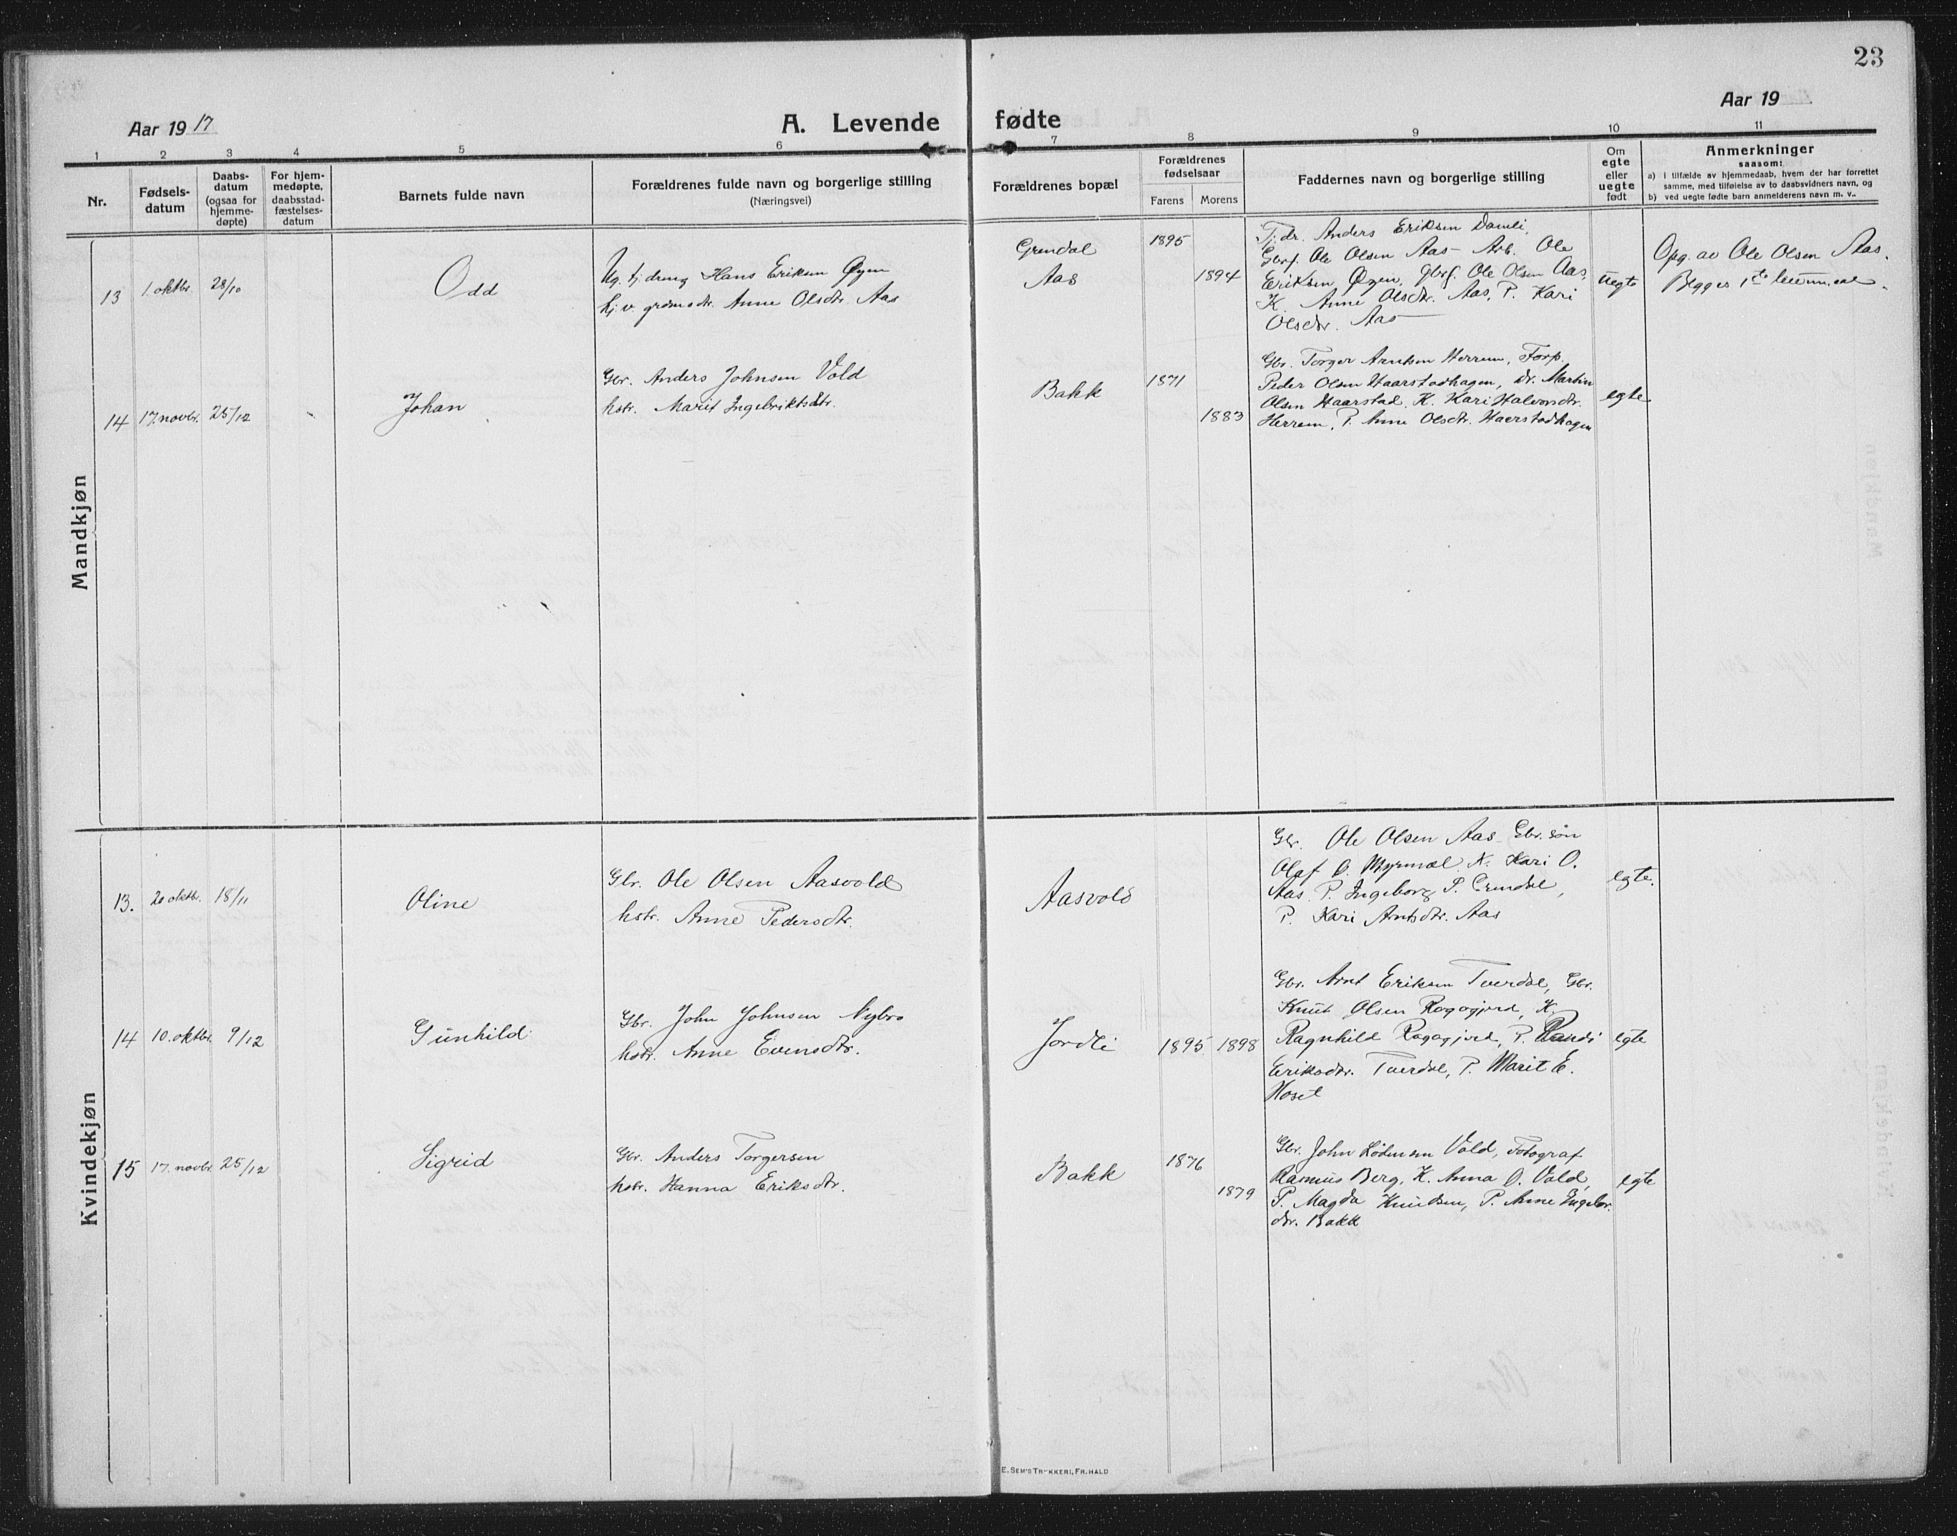 23
Aar 1917
A. Levende fødte
Aar 19
1 2 3 4 5 6 7 8 9 10 11
Nr.
Fødsels-
datum
Daabs-
datum
(ogsaa for
hjemme-
døpte)
For hjem-
medøpte,
daabsstad-
fæstelses-
datum
Barnets fulde navn
Forældrenes fulde navn og borgerlige stilling
(Næringsvei)
Forældrenes bopæl
Forældrenes
fødselsaar
Farens Morens
Faddernes navn og borgerlige stilling
Om
egte
eller
uegte
født
Anmerkninger
saasom:
a) I tilfælde av hjemmedaab, hvem der har forrettet
samme, med tilføielse av to daabsvidners navn, og
b) ved uegte fødte barn anmelderens navn m. v.
Mandkjøn
13 1. oktbr. 28/10
Odd
Ug. tj.dreng Hans Eriksen Øyen
tj. v. Anne Olsdtr. Aas
Grendal
Aas
1895
1894
Tj. dr. Anders Eriksen Damli,
Gbrf. Ole Olsen Aas Arb. Ole
Eriksen Øyen, gbrf. Ole Olsen Aas,
K. Anne Olsdtr. Aas, P. Kari
Olsdtr. Aas
uegte
Opg. av Ole Olsen Aas.
Begges 1ste leierm.
14 17. novbr. 25/12
Johan
Gbr. Anders Johnsen Vold
hstr. Marit Ingebriktsdtr.
Bakk
1871
1883
Gbr. Torger Arntsen Herrem, Forp.
Peder Olsen Haarstadhagen, Dr. Martin
Olsen Haarstad, K. Kari Halvorsdtr.
Herrem, P. Anne Olsdtr. Haarstadhagen
egte
Kvindekjøn
13. 20 oktbr. 18/11
Oline
Gbr. Ole Olsen Aasvold
hstr. Anne Pedersdtr.
Aasvold
Gbr. Ole Olsen Aas Gbr. søn
Olaf O. Myrmæl K. Kari O.
Aas P. Ingeborg P. Grindal,
P. Kari Arntsdtr. Aas
egte.
14 10. oktbr. 9/12
Gunhild
Gbr. John Johnsen Nybro
hstr. Anne Evensdtr.
Jordli
1895 1898
Gbr. Arnt Eriksen Tverdal, Gbr.
Knut Olsen Rogogjerd, K.
Ragnhild Rogogjerd, P. Randi
Eriksdtr. Tverdal, P. Marit E.
Hoset
egte
15 17. novbr. 25/12
Sigrid
Gbr. Anders Torgersen
hstr. Hanna Eriksdtr.
Bakk
1876
1879
Gbr. John Vold, Fotograf
Rasmus Berg, K. Anna O. Vold,
P. Magda Knudsen, P. Anne Ingebr.
dtr. Bakk
egte
E. SEM'S TRYKKERI, FR.HALD